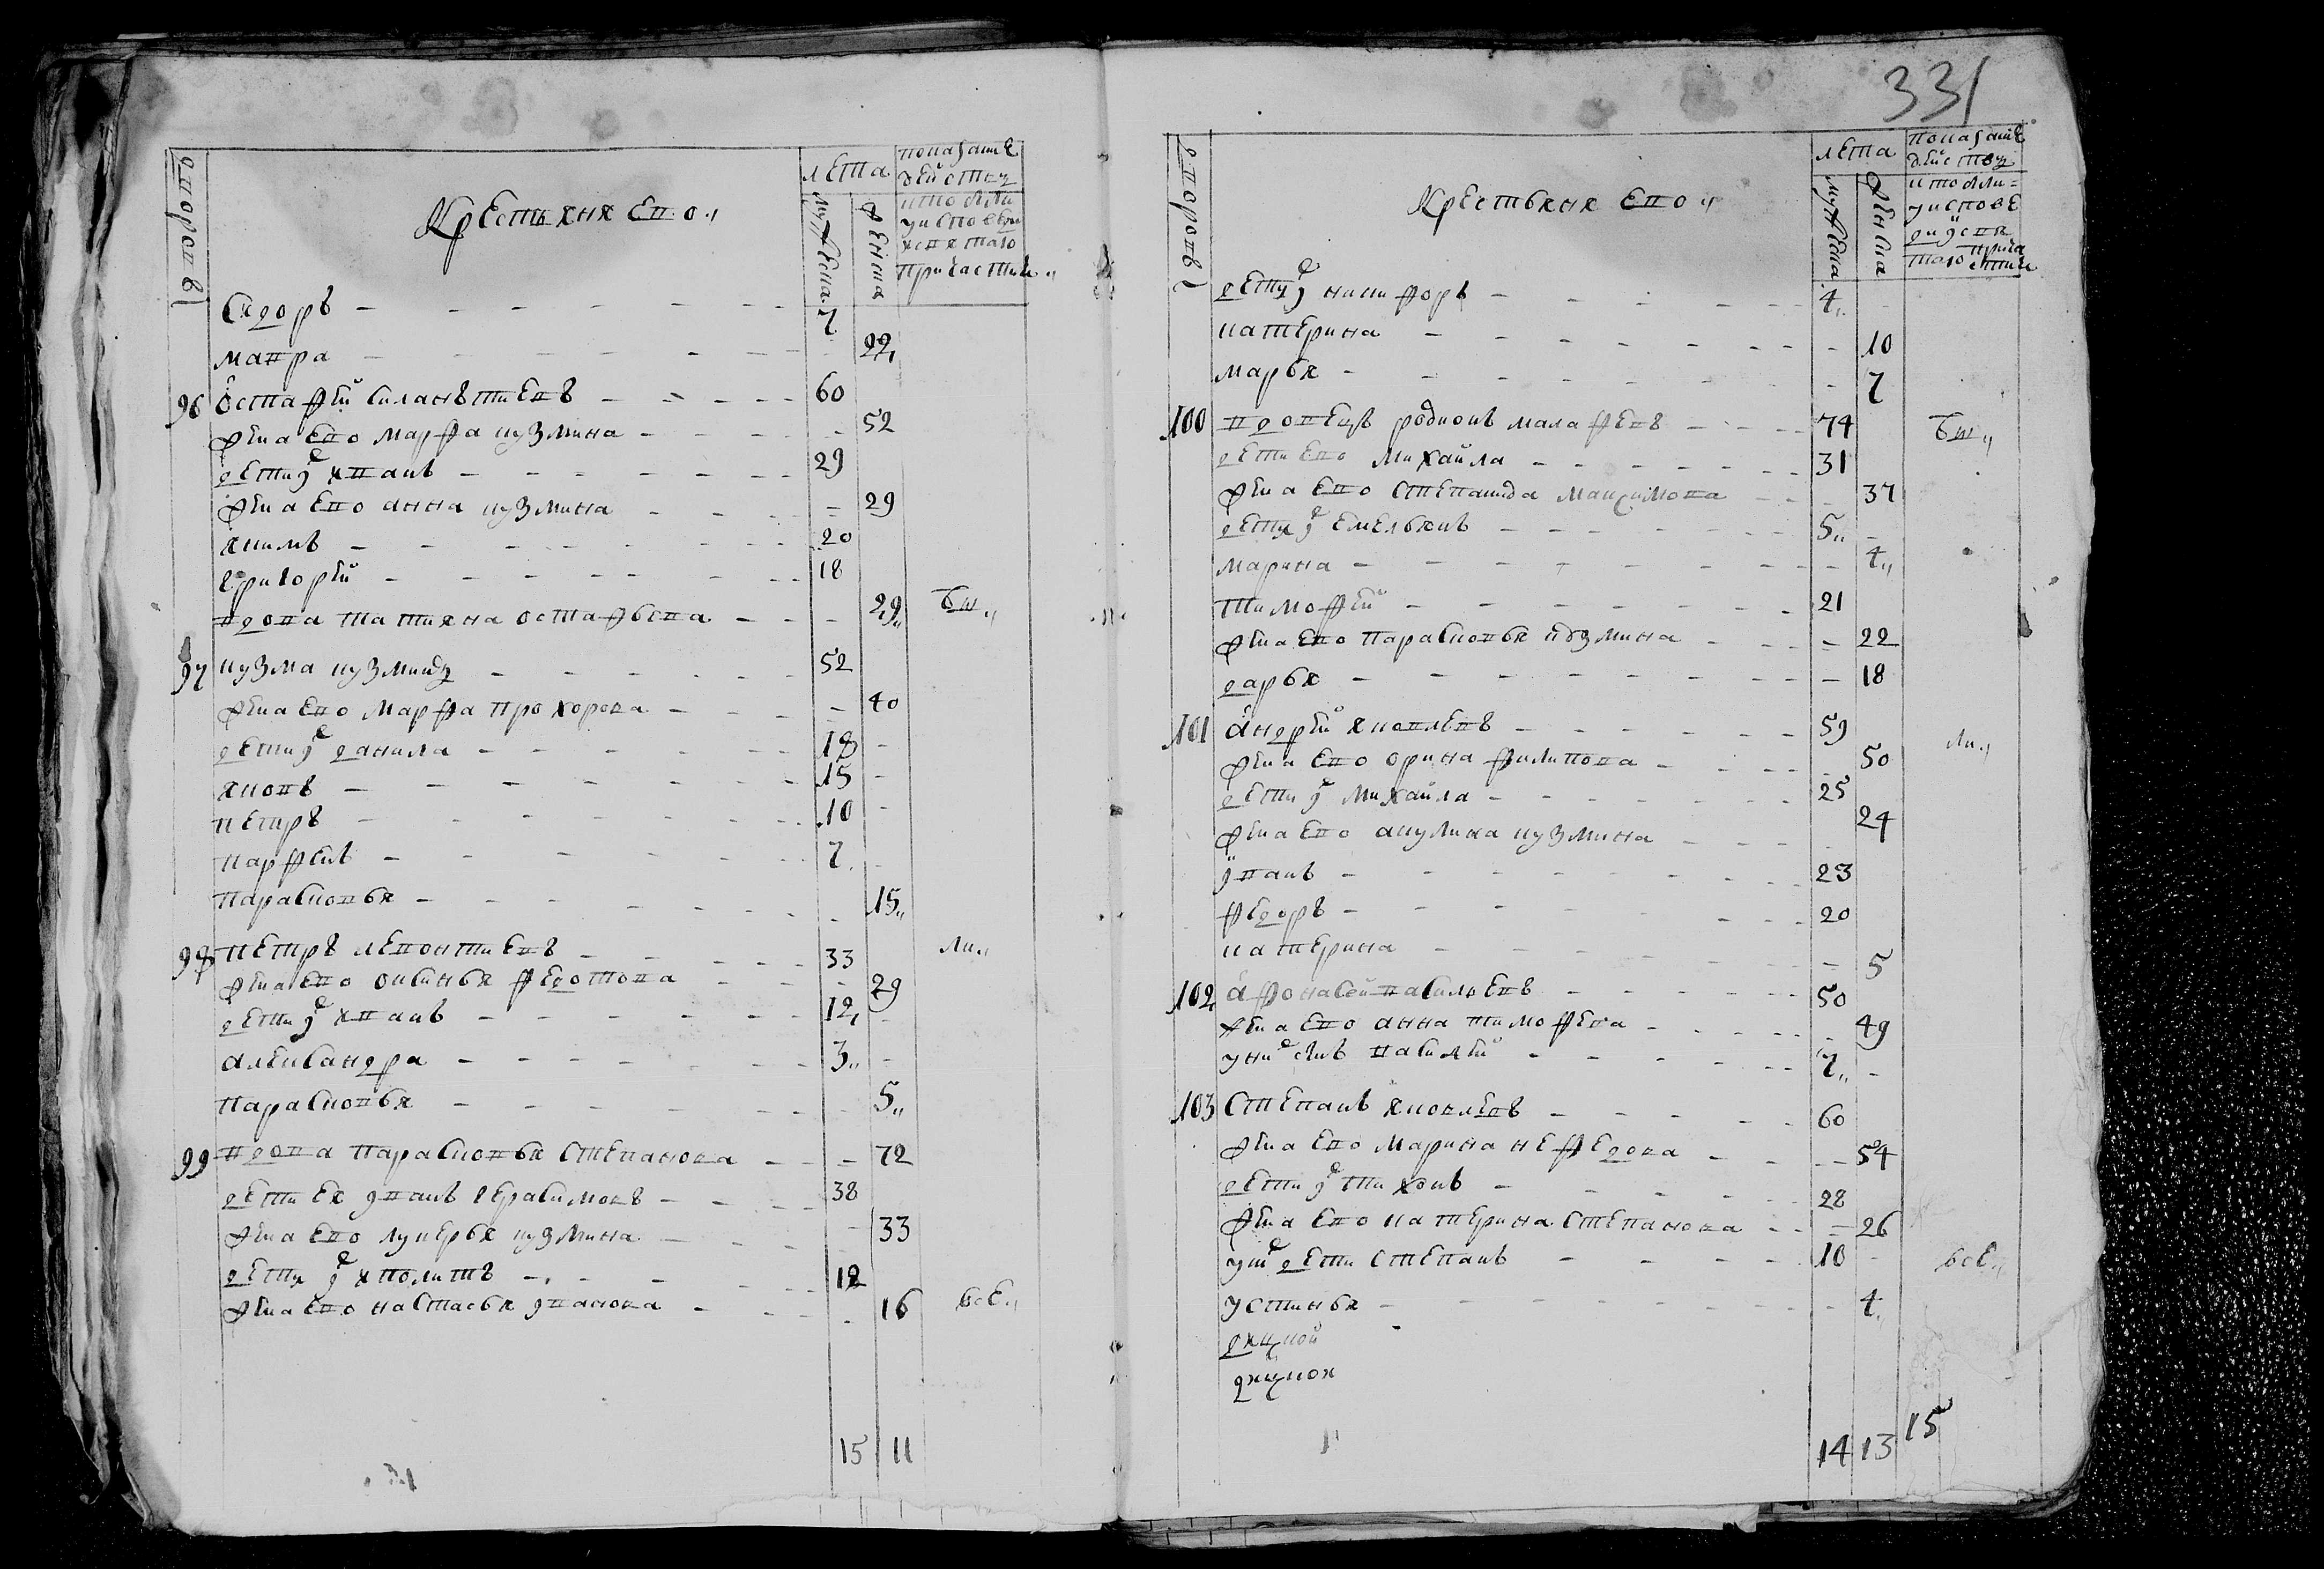 331
дворовъ
Крестьяня ево
лѣта
мужеска
женска
показание
действу
кто былъ
у исповеди
и святаго
причастия
Сидоръ 7
мавра 22
96 Остафей силантиевъ 60
жена ево марфа кузмина 52
дети их иванъ 29
жена ево анна кузмина 29
якимъ 20
григорей 18
вдова татияна остафьева 29 бы
97 кузма кузминъ 52
жена ево марфа прохорова 40
дети их данила 18
яковъ 15
петръ 10
парфенъ 7
парасковья 15
98 петръ левонтиевъ 33 ли
жена ево оксинья федотова 29
дети их иванъ 12
александра 3
парасковья 5
99 вдова парасковья степанова 72
дети ея иванъ герасимовъ 38
жена ево лукерья кузмина 33
дети их иполитъ 18
жена ево настасья иванова 16 все
15 11
дворовъ
Крестьяня ево
лѣта
мужеска
женска
показание
действу
кто были
у исповеди
и святаго
причастия
дети их никифоръ 4
катерина 10
марья 7
100 вдовецъ родионъ малафеевъ 74 бы
дети ево михайла 31
жена ево степанида максимова 37
дети их емельянъ 5
марина 4
тимофей 21
жена ево парасковья кузмина 22
дарья 18
101 андрей яковлевъ 59 ли
жена ево орина филипова 50
дети их михайла 25
жена ево акулина кузмина 24
иванъ 23
федоръ 20
катерина 5
102 афонасей васильевъ 50
жена ево анна тимофева 49
у них сынъ василей 7
103 степанъ яковлевъ 60
жена ево марина нефедова 54
дети их тихонъ 28
жена ево катерина степанова 26
у них дети степанъ 10 все
устинья 4
дяцкой
дяцкоя
14 13 15